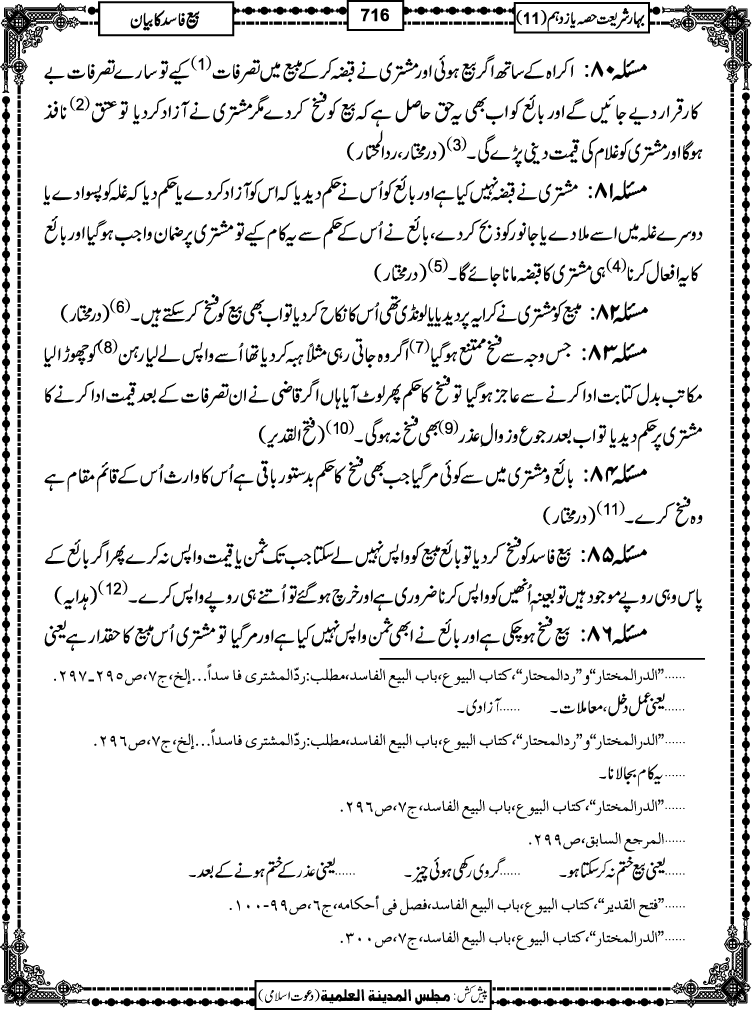 بہارِ شریعت حصہ یازدہم (11)
716
بیع فاسد کا بیان
مسئلہ ۸۰: اکراہ کے ساتھ اگر بیع ہوئی اور مشتری نے قبضہ کرکے مبیع میں تصرفات (1) کیے تو سارے تصرفات بے
کار قرار دیے جائیں گے اور بائع کو اب بھی یہ حق حاصل ہے کہ بیع کو فسخ کردے مگر مشتری نے آزاد کردیا تو عتق (2) نافذ
ہوگا اور مشتری کو غلام کی قیمت دینی پڑے گی۔ (3) (درمختار، ردالمحتار)
مسئلہ ۸۱: مشتری نے قبضہ نہیں کیا ہے اور بائع کو اُس نے حکم دیدیا کہ اس کو آزاد کردے یا حکم دیا کہ غلہ کو پسوادے یا
دوسرے غلہ میں اسے ملادے یا جانور کو ذبح کردے، بائع نے اُس کے حکم سے یہ کام کیے تو مشتری پر ضمان واجب ہوگیا اور بائع
کا یہ افعال کرنا (4) ہی مشتری کا قبضہ مانا جائے گا۔ (5) (درمختار)
مسئلہ ۸۲: مبیع کو مشتری نے کرایہ پر دیدیا یا لونڈی تھی اُس کا نکاح کردیا تو اب بھی بیع کو فسخ کرسکتے ہیں۔ (6) (درمختار)
مسئلہ ۸۳: جس وجہ سے فسخ ممتنع ہوگیا (7) اگر وہ جاتی رہی مثلاً ہبہ کردیا تھا اُسے واپس لے لیا رہن (8) کو چھوڑا لیا
مکاتب بدل کتابت ادا کرنے سے عاجز ہوگیا تو فسخ کا حکم پھر لوٹ آیا ہاں اگر قاضی نے ان تصرفات کے بعد قیمت ادا کرنے کا
مشتری پر حکم دیدیا تو اب بعد رجوع و زوالِ عذر (9) بھی فسخ نہ ہوگی۔ (10) (فتح القدیر)
مسئلہ ۸۴: بائع و مشتری میں سے کوئی مرگیا جب بھی فسخ کا حکم بدستور باقی ہے اُس کا وارث اُس کے قائم مقام ہے
وہ فسخ کرے۔ (11) (درمختار)
مسئلہ ۸۵: بیع فاسد کو فسخ کردیا تو بائع مبیع کو واپس نہیں لے سکتا جب تک ثمن یا قیمت واپس نہ کرے پھر اگر بائع کے
پاس وہی روپے موجود ہیں تو بعینہٖ اُنھیں کو واپس کرنا ضروری ہے اور خرچ ہوگئے تو اُتنے ہی روپے واپس کرے۔ (12) (ہدایہ)
مسئلہ ۸۶: بیع فسخ ہوچکی ہے اور بائع نے ابھی ثمن واپس نہیں کیا ہے اور مرگیا تو مشتری اُس مبیع کا حقدار ہے یعنی
......”الدرالمختار“و ”ردالمحتار“، کتاب البیوع، باب البیع الفاسد، مطلب: ردّالمشتری فاسداً...إلخ، ج۷، ص۲۹۵-۲۹۷.
......یعنی عمل دخل، معاملات۔ ......آزادی۔
......”الدرالمختار“و ”ردالمحتار“، کتاب البیوع، باب البیع الفاسد، مطلب: ردّالمشتری فاسداً...إلخ، ج۷، ص۲۹۶.
......یہ کام بجالانا۔
......”الدرالمختار“، کتاب البیوع، باب البیع الفاسد، ج۷، ص۲۹۶.
......المرجع السابق، ص۲۹۹.
......یعنی بیع ختم نہ کرسکتا ہو۔ ......گروی رکھی ہوئی چیز۔ ......یعنی عذر کے ختم ہونے کے بعد۔
......”فتح القدیر“، کتاب البیوع، باب البیع الفاسد، فصل فی أحکامہ، ج۶، ص۹۹-۱۰۰.
......”الدرالمختار“، کتاب البیوع، باب البیع الفاسد، ج۷، ص۳۰۰.
پیش کش: مجلس المدینۃ العلمیۃ (دعوت اسلامی)